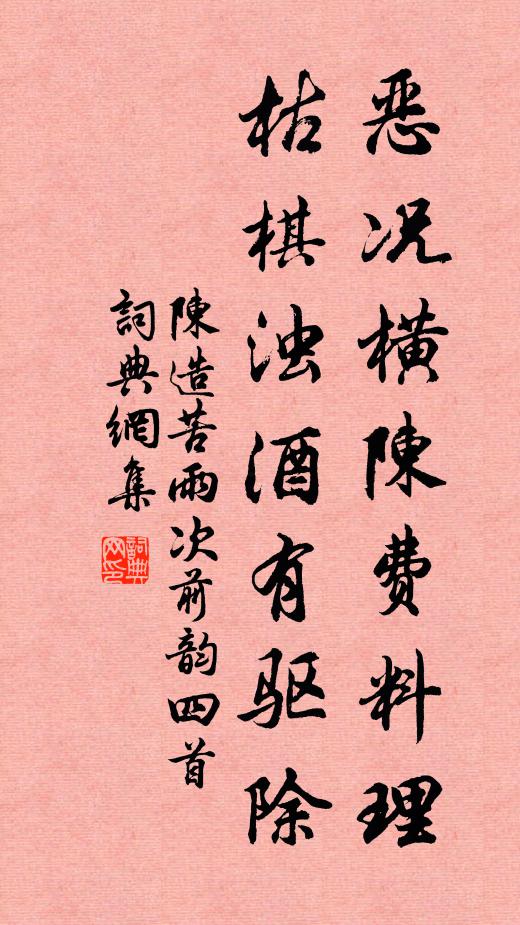 恶况横陳费料理
枯棋浊酒有驱除
陳造苦雨次前韵四首
詞典網集
詞典網印